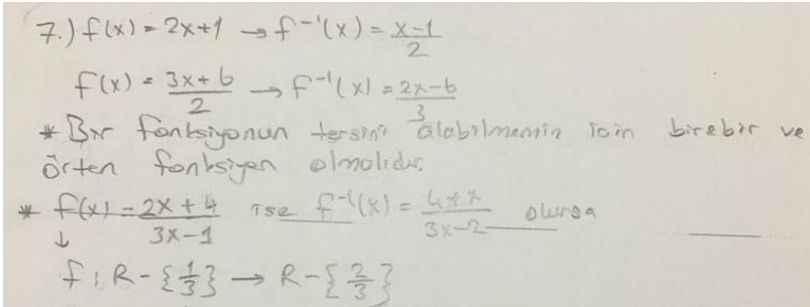 7.) f(x) = 2x+1 → f⁻¹(x) = (x-1)/2
f(x) = (3x+6)/2 → f⁻¹(x) = (2x-6)/3
* Bir fonksiyonun tersini alabilmemin için birebir ve
örten fonksiyon olmalıdır.
* f(x) = (2x+4)/(3x-1) ise f⁻¹(x) = (4+x)/(3x-2) olursa
↓
f: R-{1/3} → R-{2/3}